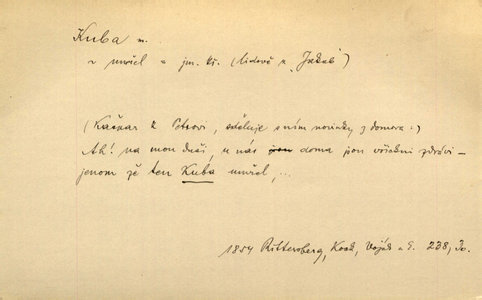 Kuba m.
v umřel a jm. kř. (lidově z "Jakub")
(Kašpar k Petrovi, sděluje s ním novinky z domova:)
Ah! na mou duši, u nás jsou doma jsou všickni zdrávi –
jenom že ten Kuba umřel, ...
1854 Rittersberg, Kost, Vojád a G. 238, Jo.